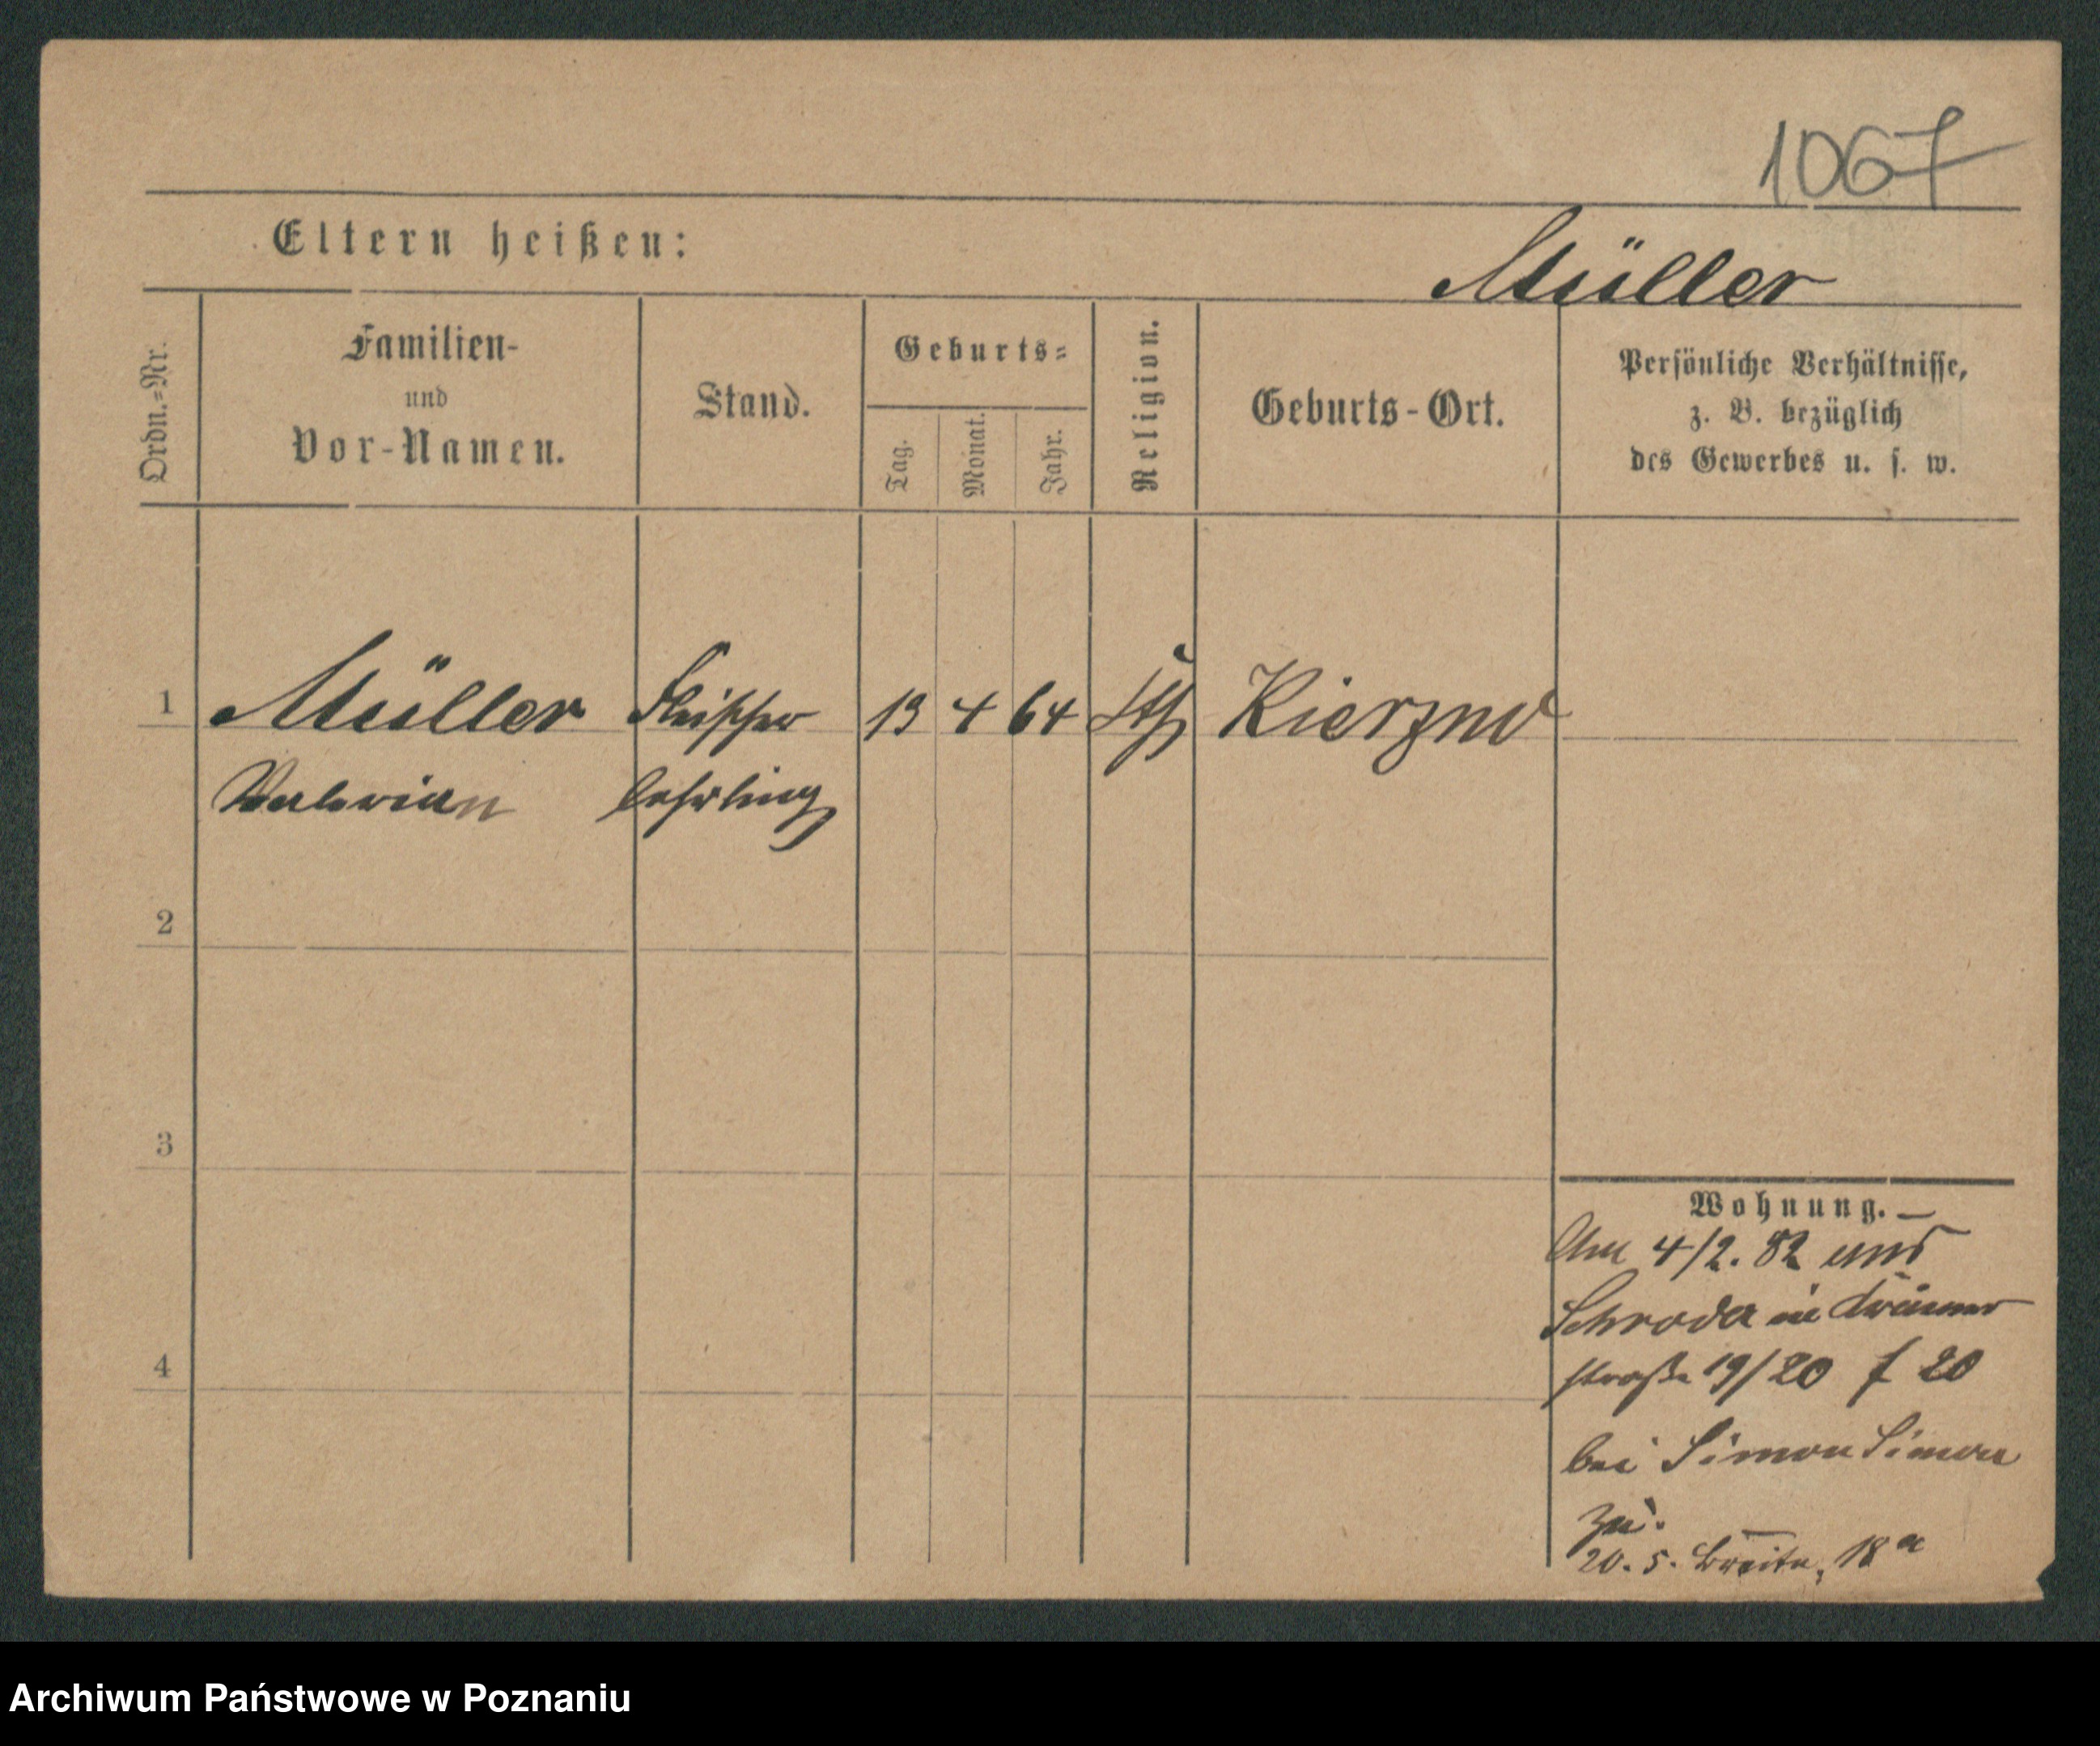 1067
Eltern heißen:
Müller
Ordn.=Nr.
Familien-
und
Vor-Namen.
Stand.
Geburts=
Tag.
Monat.
Jahr.
Religion.
Geburts-Ort.
Persönliche Verhältnisse,
z. B. bezüglich
des Gewerbes u. s. w.
1 Müller Fleischer 13 4 64 kth Kierzno
Valerian lehrling
2
3
4
Wohnung.
4/2. 82 aus
Schroda in Krämer
straße 19/20 f 20
bei Simon Simon
zu.
20. 5. Breite, 18a
Archiwum Państwowe w Poznaniu